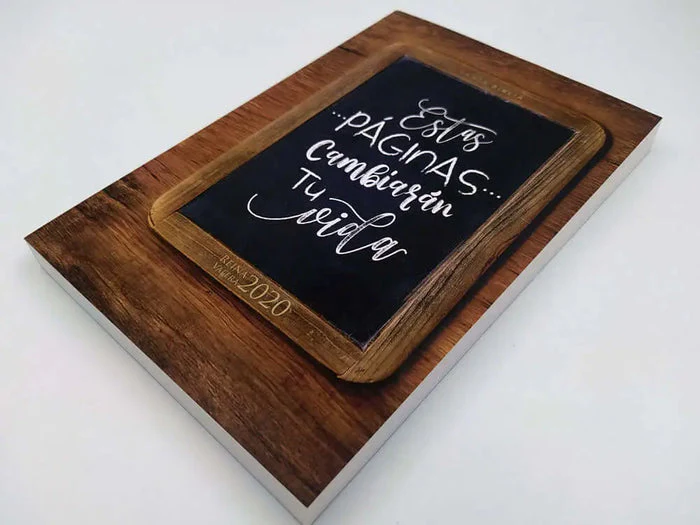 Estas
...PÁGINAS...
Cambiarán
Tu
vida
REINA
VALERA 2020